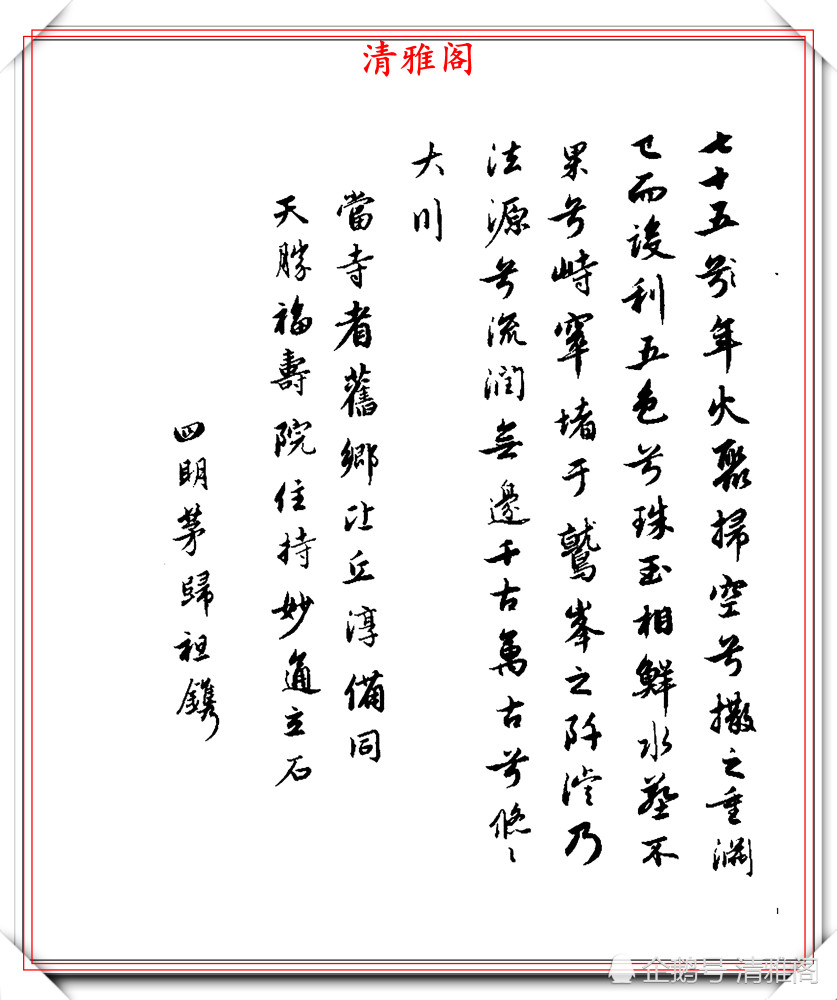 清雅阁
七十五齡年火聚掃空兮撒之重淵
已而設利五色兮珠玉相鮮水葬不
果兮峙窣堵于鷲峯之阡濬乃
法源兮流潤無邊千古萬古兮悠〻
大川
當寺耆舊鄉比丘淳備同
天勝福壽院住持妙通立石
四明茅歸祖鐫
企鹅号 清雅阁